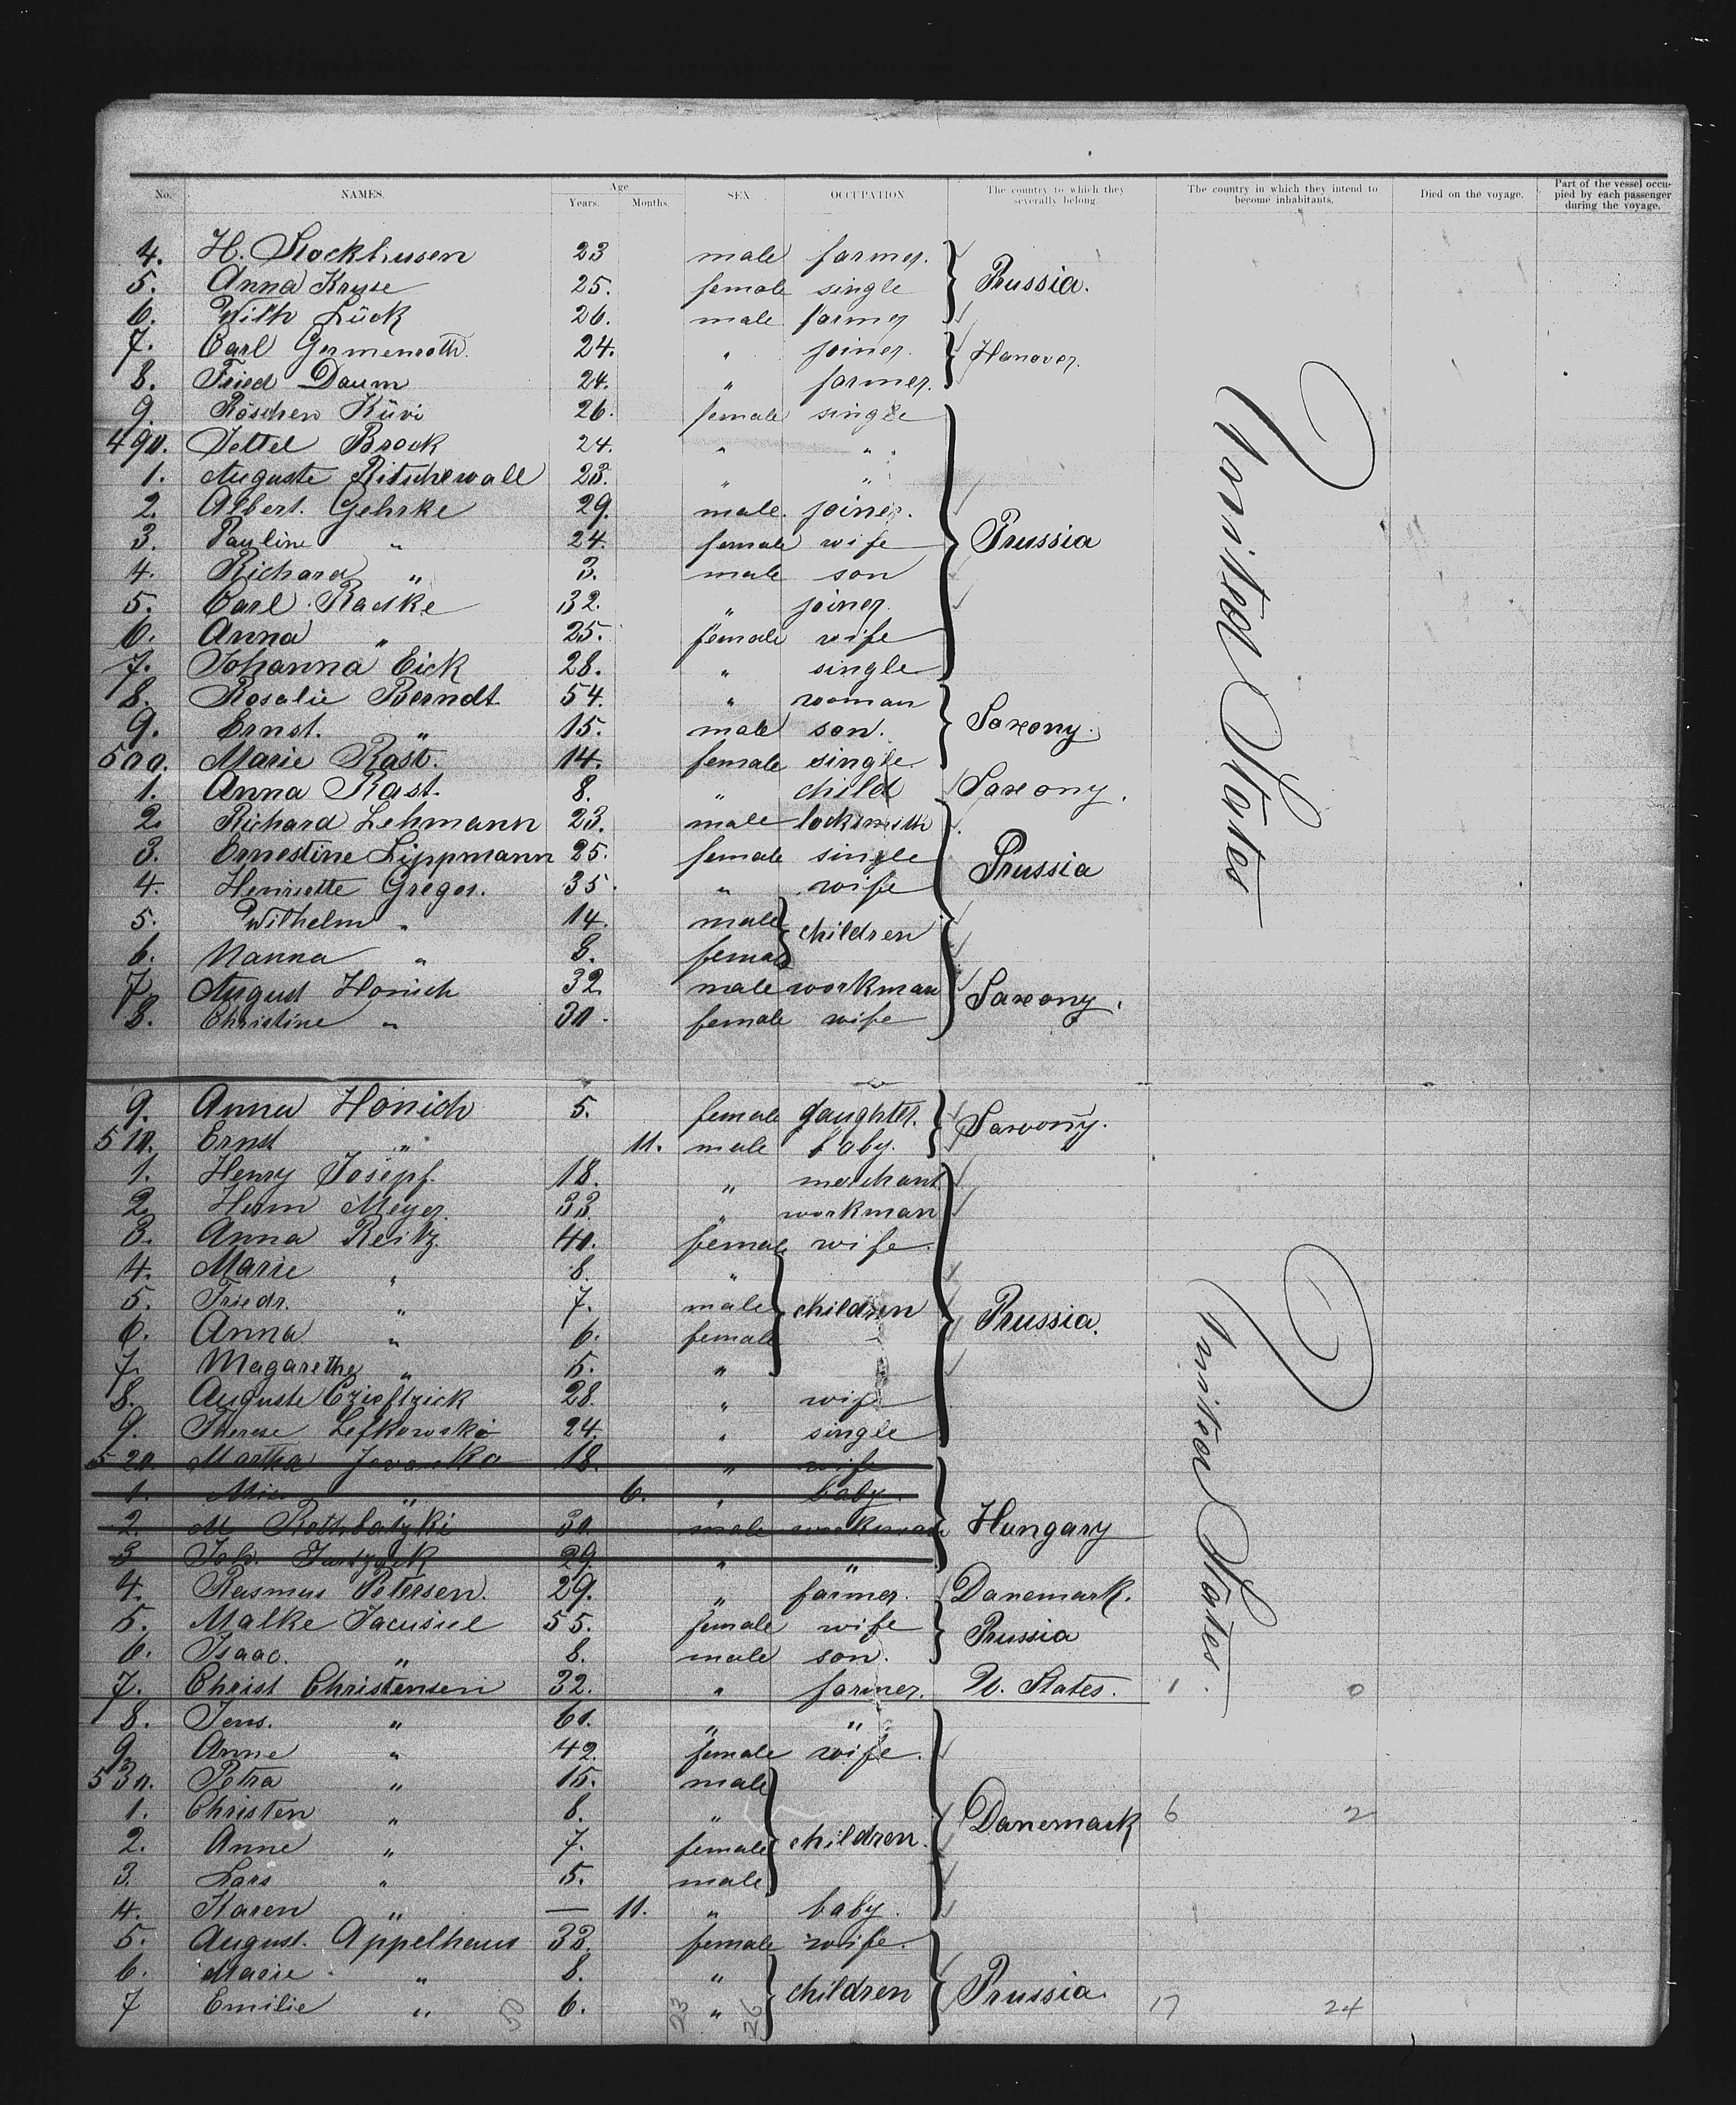 No. NAMES. Age Years. Months. SEX. OCCUPATION. The country to which they severally belong. The country in which they intend to become inhabitants. Died on the voyage. Part of the vessel occupied by each passenger during the voyage.
4. H. Stockhusen 23 male farmer.
5. Anna Kruse 25. female single Prussia.
6. Wilh Lück 26. male farmer
7. Carl Germenroth. 24. " joiner. Hanover.
8. Fried Daum 24. " farmer.
9. Röschen Küvi 26. female single
490. Jettel Brock 24. " "
1. Auguste Ritschewall 23. " "
2. Albert. Gehrke 29. male. joiner.
3. Pauline " 24. female wife Prussia
4. Richard " 3. male son
5. Carl Radke 32. " joiner.
6. Anna " 25. female wife
7. Johanna Eick 28. " single
8. Rosalie Berndt 54. " woman
9. Ernst. " 15. male son. Saxony.
500. Marie Rast. 14. female single.
1. Anna Rast. 8. " child Saxony.
2. Richard Lehmann 23. male locksmith
3. Ernestine Lippmann 25. female single Prussia
4. Henriette Greger. 35. " wife
5. Wilhelm " 14. male children
6. Nanna " 8. female
7. August Hönich 32 male workman Saxony.
8. Christine " 30. female wife
9. Anna Hönich 5. female daughter. Saxony.
510. Ernst " 11. male baby.
1. Henry Josepf. 18. " merchant
2. Herm Meyer 33. " workman
3. Anna Reitz. 40. female wife.
4. Marie " 8. "
5. Friedr. " 7. male children Prussia.
6. Anna " 6. female
7. Magarethe " 5. "
8. Auguste 28. " wife
9. Therese Lefkowski 24. " single
520. Martha 18. " wife
1. " 6. " baby.
2. M 30. male workman Hungary
3 Joh. 29. " "
4. Rasmus Petersen. 29. " farmer. Danemark.
5. Malke 55. female wife Prussia
6. Isaac. " 8. male son.
7. Christ Christensen 32. " farmer. U. States. 1 0
8. Jens. " 60. " "
9. Anne " 42. female wife.
530. Petra " 15. male
1. Christen " 8. " Danemark 6 2
2. Anne " 7. female children.
3. Lars " 5. male
4. Karen " — 11. " baby.
5. August. Appelhaus 33. female wife.
6. Marie " 8. " children Prussia.
7 Emilie " 50 6. 23 " 26 17 24
United States
United States.